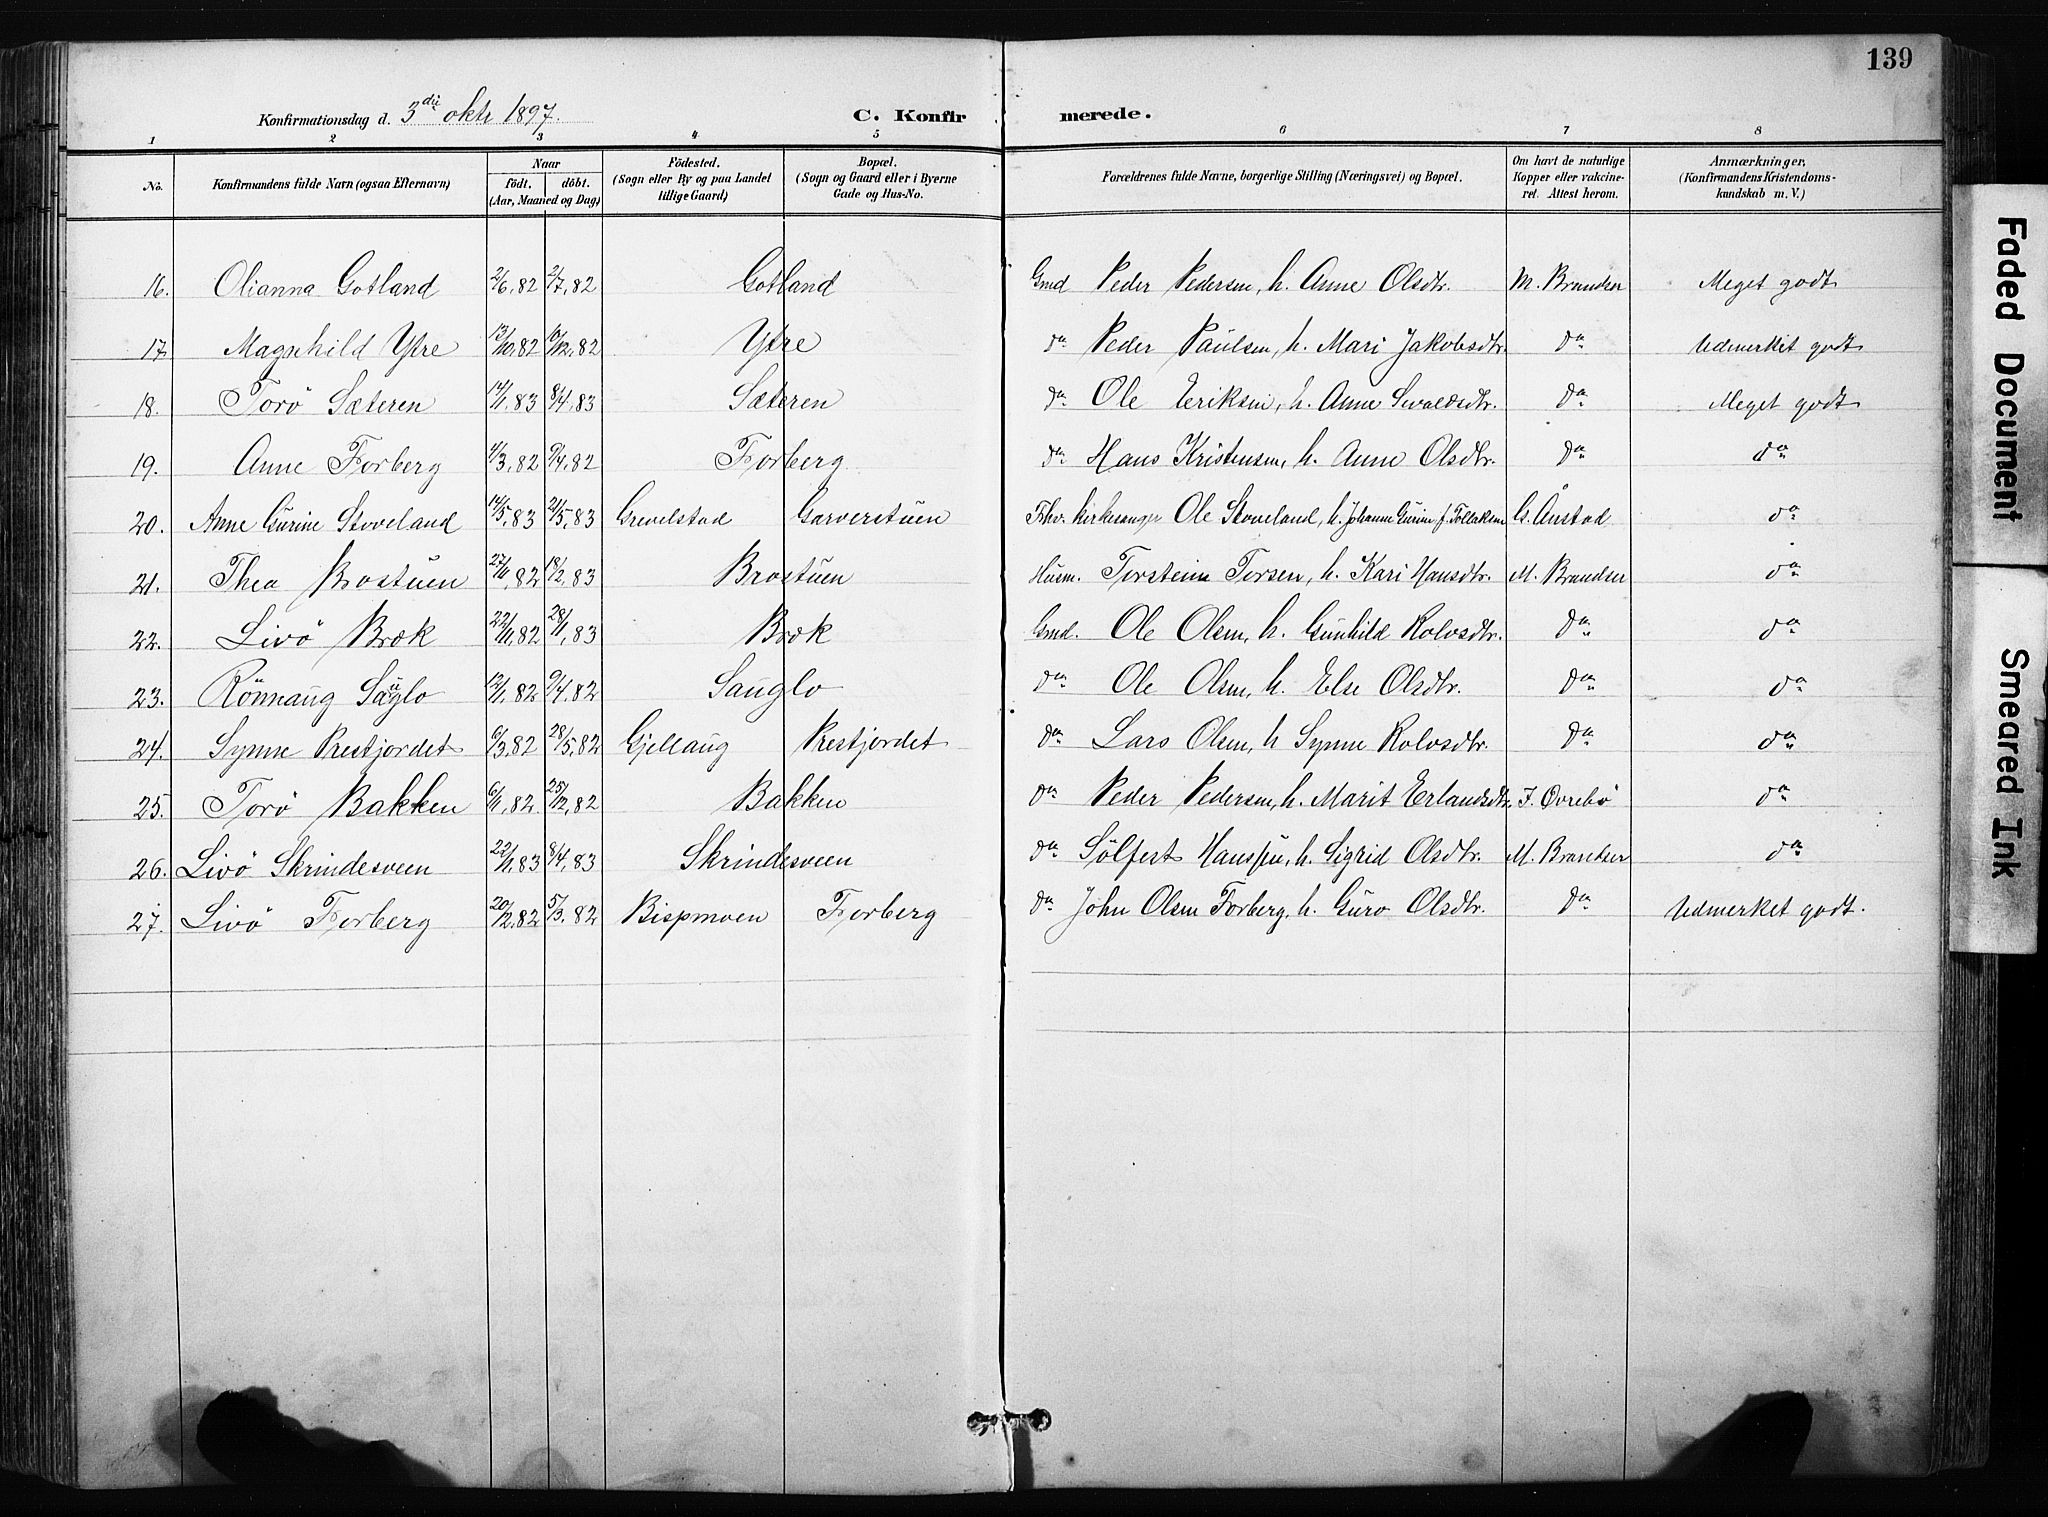 139
Konfirmationsdag d. 3die oktr 1897.
C. Konfirmerede.
1 2 3 4 5 6 7 8
No. Konfirmandens fulde Navn (ogsaa Efternavn) Naar födt. döbt. (Aar, Maaned og Dag) Födested. (Sogn eller By og paa Landet tillige Gaard) Bopæl. (Sogn og Gaard eller i Byerne Gade og Hus-No. Forældrenes fulde Navne, borgerlige Stilling (Næringsvei) og Bopæl. Om havt de naturlige Kopper eller vakcineret. Attest herom. Anmærkninger, (Konfirmandens Kristendomskundskab m. V.)
16. Olianna Gotland 2/6,82 2/7,82 Gotland Gmd Peder Pedersen, h. Anne Olsdtr. M. Brandser Meget godt
17. Magnhild Ytre 13/10,82 10/12,82 Ytre do Peder Paulsen, h. Mari Jakobsdtr. do Udmerket godt
18. Torö Sæteren 14/1,83 8/4,83 Sæteren do Ole Eriksen, h. Anne Sivaldsdtr. do Meget godt
19. Anne Forberg 4/3,82 9/4,82 Forberg do Hans Kristensen, h. Anne Olsdtr. do do
20. Anne Gurine Stoveland 14/5,83 21/5,83 Grevelstad Garverstuen Fhv. kirkesanger Ole Stoveland, h. Johanne Gurine f. Tollaksen G. Ånstad do
21. Thea Brostuen 27/11,82 18/2,83 Brostuen Husm. Torstein Torsen, h. Kari Hansdtr. M. Brandser do
22. Livö Bræk 22/11,82 28/1,83 Bræk Gmd. Ole Olsen, h. Gunhild Rolvsdtr. do do
23. Rönnaug Sauglo 12/1,82 9/4,82 Sauglo do Ole Olsen, h. Else Olsdtr. do do
24. Synne Prestjordet 6/3,82 28/5,82 Gjellaug Prestjordet do Lars Olsen, h Synne Rolvsdtr. do do
25. Torö Bakken 6/11,82 25/12,82 Bakken do Peder Pedersen, h. Marit Erlandsdtr. I. Övrebö do
26. Livö Skrindesveen 22/1,83 8/4,83 Skrindesveen do Sölfest h. Sigrid Olsdtr. M. Brandser do
27. Livö Forberg 20/2,82 5/3,82 Bispmoen Forberg do John Olsen Forberg, h. Guro Olsdtr. do Udmerket godt.
Faded Document
Smeared Ink